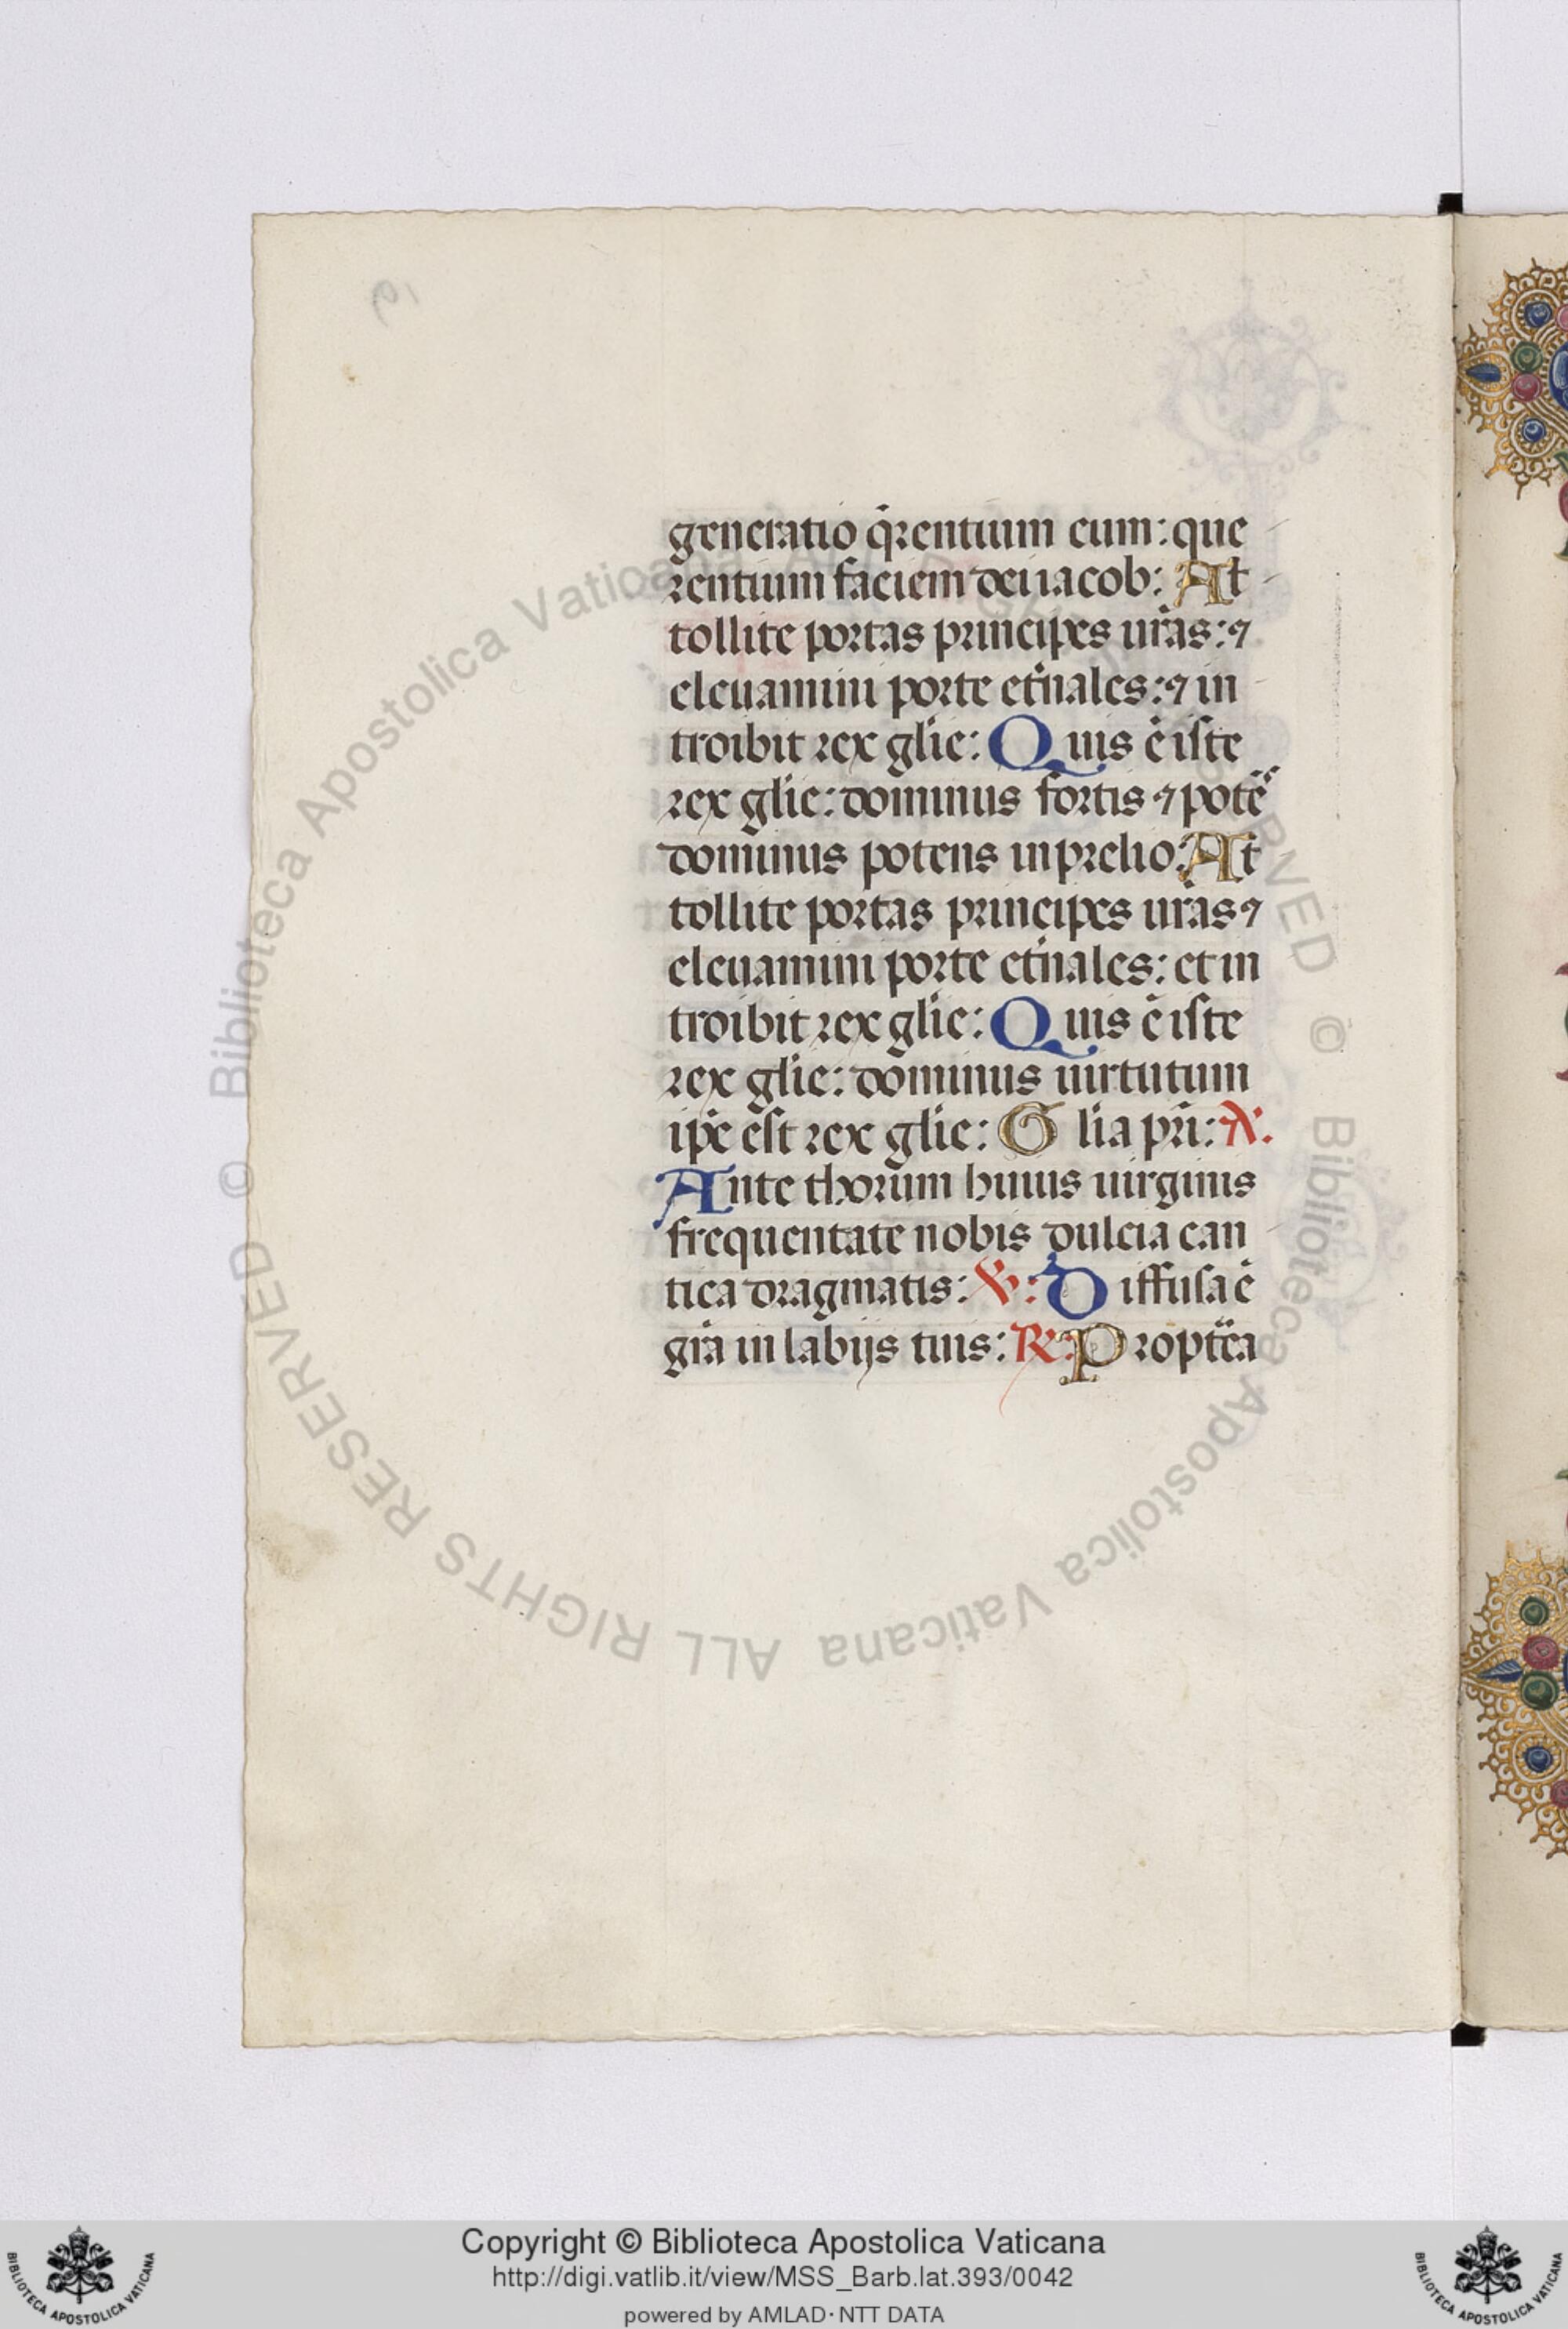 generatio q̄rentium eum: que
rentium faciem dei iacob: At
tollite portas principes ur̄as: ⁊
eleuamini porte et̄nales: ⁊ in
troibit rex gl̄ie: Quis ē iste
rex gl̄ie: dominus fortis ⁊ potē̄s
dominus potens in prelio: At
tollite portas principes ur̄as ⁊
eleuamini porte et̄nales: et in
troibit rex gl̄ie: Quis ē iste
rex gl̄ie: dominus uirtutum
ip̄e est rex gl̄ie: Gl̄ia pr̄i: A.
Ante thorum huius uirginis
frequentate nobis dulcia can
tica dragmatis: ℣: Diffusa ē
gr̄a in labijs tuis: ℟: Propt̄ea
© Biblioteca Apostolica Vaticana ALL RIGHTS RESERVED
© Biblioteca Apostolica Vaticana ALL RIGHTS RESERVED
Copyright © Biblioteca Apostolica Vaticana
http://digi.vatlib.it/view/MSS_Barb.lat.393/0042
powered by AMLAD·NTT DATA
BIBLIOTECA APOSTOLICA VATICANA
BIBLIOTECA APOSTOLICA VATICANA